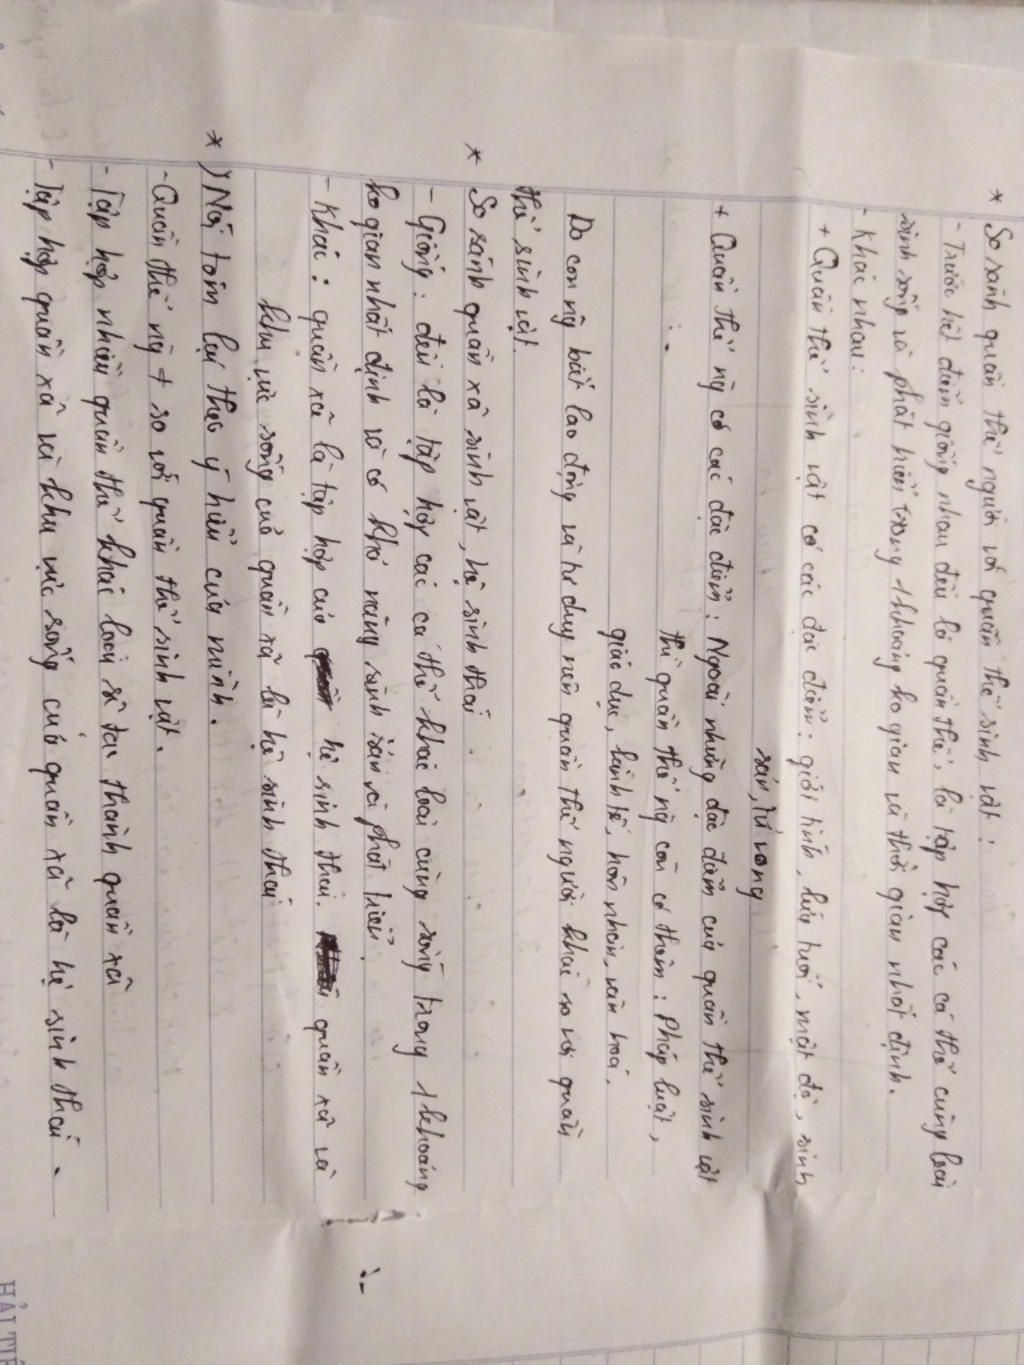 * So sánh quần thể người với quần thể sinh vật :
- Trước hết điểm giống nhau đều là quần thể, là tập hợp các cá thể cùng loài
sinh sống và phát triển trong 1 khoảng ko gian và thời gian nhất định.
- Khác nhau:
+ Quần thể sinh vật có các đặc điểm: giới tính, lứa tuổi, mật độ, sinh
sản, tử vong
+ Quần thể ng có các đặc điểm: Ngoài những đặc điểm của quần thể sinh vật
thì quần thể ng còn có thêm: Pháp luật,
giáo dục, kinh tế, hôn nhân, văn hoá.
Do con ng biết lao động và tư duy nên quần thể người khác so với quần
thể sinh vật.
* So sánh quần xã sinh vật, hệ sinh thái
- Giống: đều là tập hợp các cá thể khác loài cùng sống trong 1 khoảng
ko gian nhất định và có khả năng sinh sản và phát triển.
- Khác: quần xã là tập hợp của hệ sinh thái. quần xã và
khu vực sống của quần xã là hệ sinh thái
*) Nói tóm lại theo ý hiểu của mình.
- Quần thể ng + so với quần thể sinh vật.
- Tập hợp nhiều quần thể khác loài sẽ tạo thành quần xã
- Tập hợp quần xã và khu vực sống của quần xã là hệ sinh thái.
HẢI TIẾ